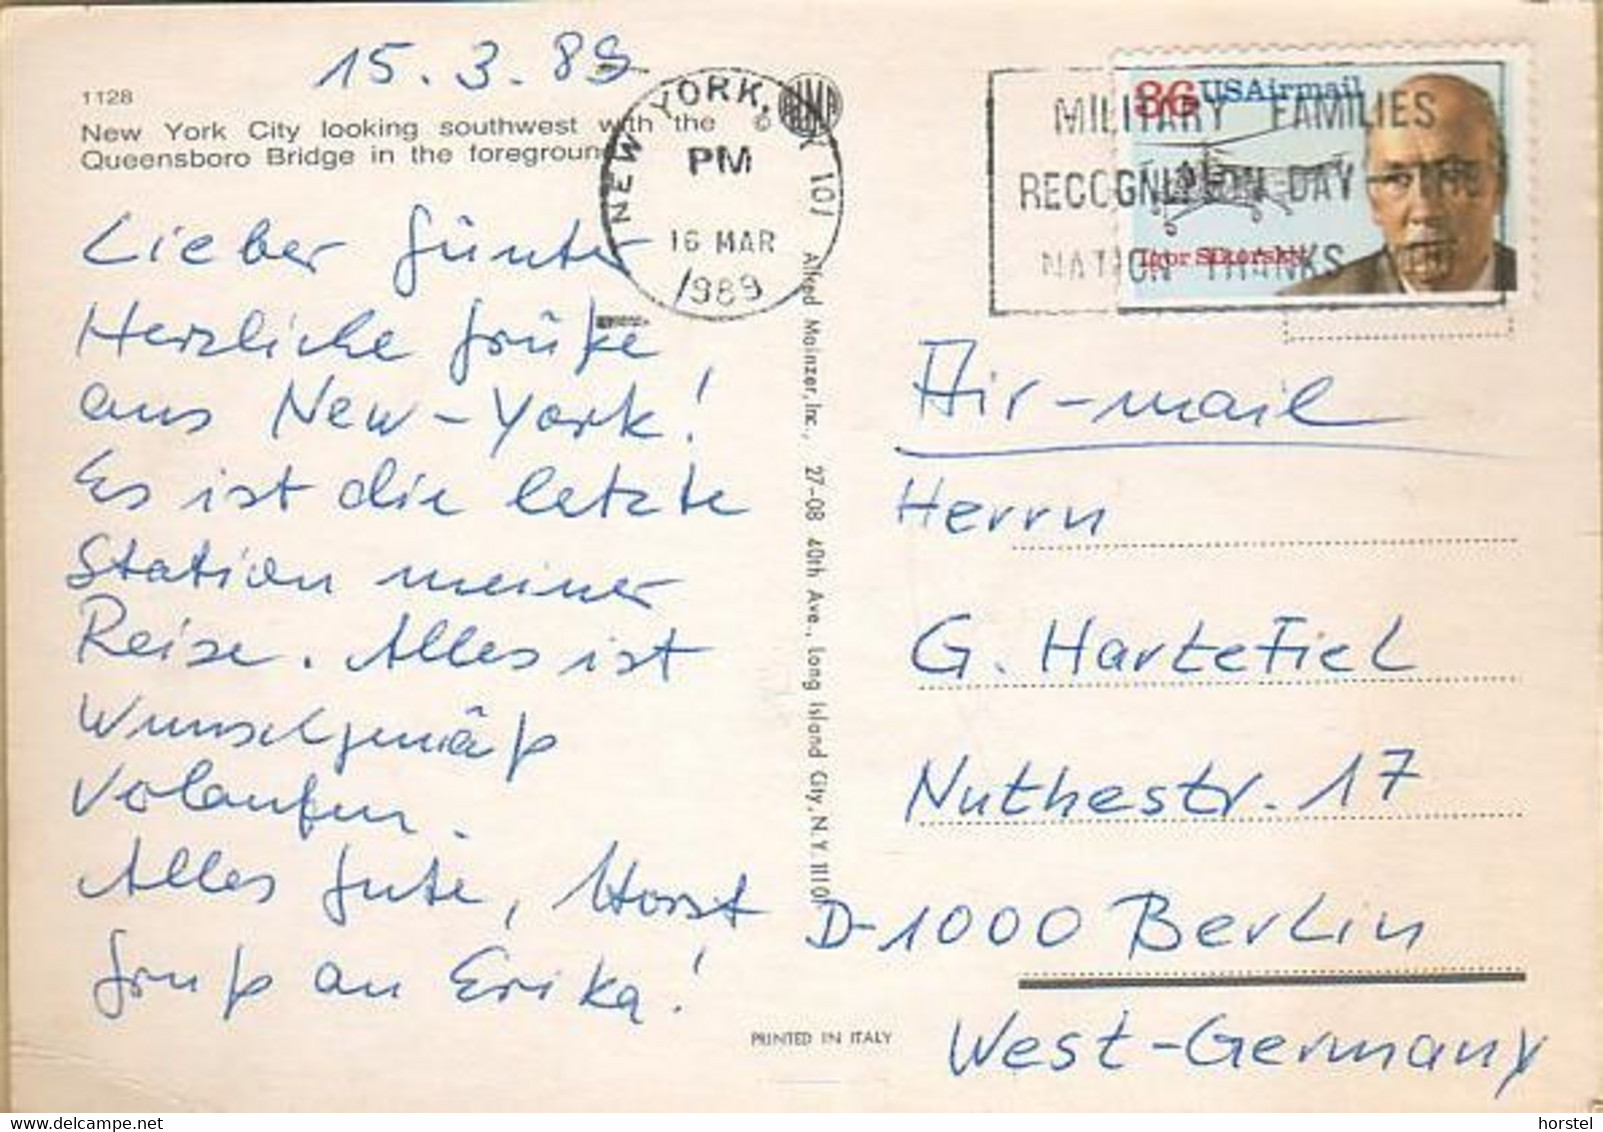 15.3.89
1128
New York City looking southwest with the
Queensboro Bridge in the foreground
Lieber Günter
Herzliche Grüße
aus New-York!
Es ist die letzte
Station meiner
Reise. Alles ist
Wunschgemäß
Verlaufen.
Alles Gute, Horst
Gruß an Erika!
NEW YORK,
PM
16 MAR
1989
Alfred Mainzer, Inc., 27-08 40th Ave., Long Island City, N.Y. 11101
PRINTED IN ITALY
36 USAirmail
Igor Sikorsky
MILITARY FAMILIES
RECOGNITION DAY
NATION THANKS
Air-mail
Herrn
G. Hartefiel
Nuthestr. 17
D-1000 Berlin
West-Germany
horstel